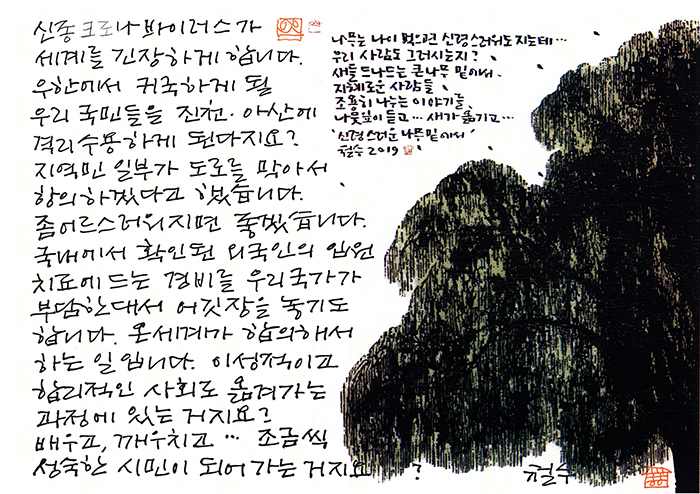 신종코로나 바이러스가
세계를 긴장하게 합니다.
우한에서 귀국하게 될
우리 국민들을 진천·아산에
격리수용하게 된다지요?
지역민 일부가 도로를 막아서
항의하겠다고 했습니다.
좀 어르스러워지면 좋겠습니다.
국내에서 확인된 외국인의 입원
치료에 드는 경비를 우리국가가
부담한대서 어깃장을 놓기도
합니다. 온세계가 합의해서
하는 일입니다. 이성적이고
합리적인 사회로 옮겨가는
과정에 있는 거지요?
배우고, 깨우치고… 조금씩
성숙한 시민이 되어 가는 거지요 ?
나무는 나이 먹으면 신령스러워도 지는데…
우리 사람도 그러시는지?
새들 드나드는 큰나무 밑에서
지혜로운 사람들
조용히 나누는 이야기를
나뭇잎이 듣고… 새가 옮기고…
'신령스러운 나무 밑에서'
철수 2019
철수